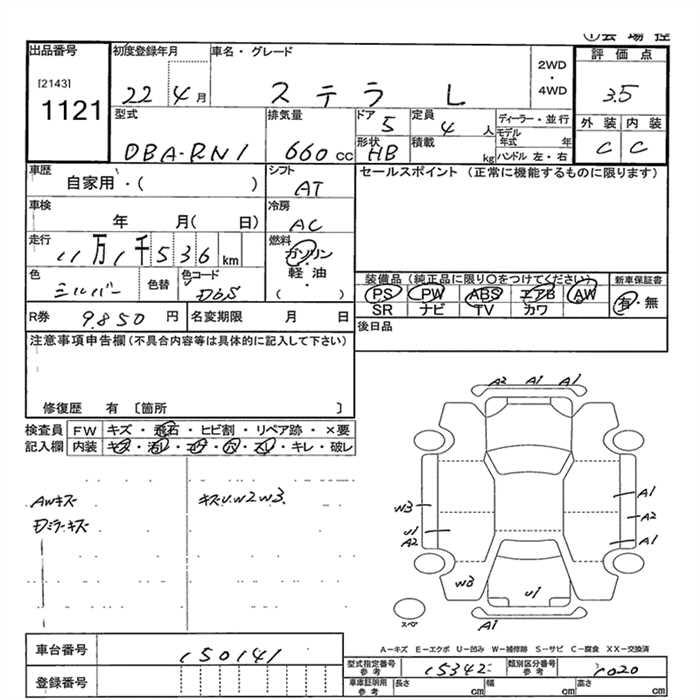 ①会 場 控
出品番号
[2143]
1121
初度登録年月
22 4月
車名・グレード
ステラ L
2WD
・
4WD
評 価 点
3.5
型式
DBA-RN1
排気量
660cc
ドア
5
定員
4 人
ディーラー・並行
モデル年式 年
ハンドル 左・右
形状
HB
積載
kg
外 装 内 装
C C
車歴
自家用・( )
シフト
AT
セールスポイント (正常に機能するものに限ります)
車検
年 月( 日)
冷房
AC
走行
11万1千536km
燃料
ガソリン
・
軽 油
・
( )
色
シルバー
色替
色コード
D6S
装備品(純正品に限り○をつけてください)
新車保証書
PS PW ABS エアB AW
SR ナビ TV カワ
有・無
R券
9.850 円
名変期限 月 日
後日品
注意事項申告欄(不具合内容等は具体的に記入して下さい)
修復歴 有 〔箇所 〕
検査員記入欄
FW キズ・飛石・ヒビ割・リペア跡・×要
内装 キズ・汚レ・コゲ・穴・スレ・キレ・破レ
AWキズ
Dミラーキズ
キズU.W2W3
A2 A1 A1
W3
U1
A2
A1
A2
A1
W3
U1
スペ
A1
A-キズ E-エクボ U-凹み W-補修跡 S-サビ C-腐食 XX-交換済
車台番号
150141
登録番号
型式指定番号
参考
15342
類別区分番号
参考
1020
車庫証明用
参考
長さ cm
幅 cm
高さ cm